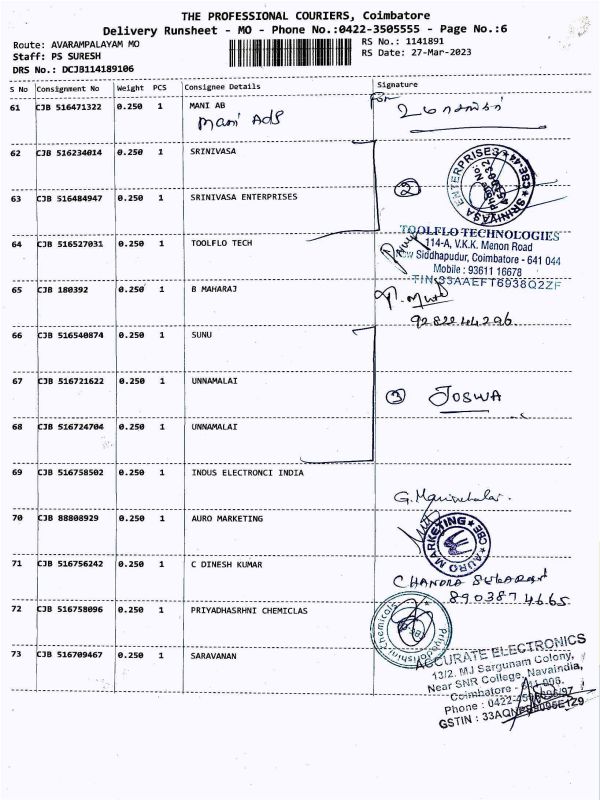 THE PROFESSIONAL COURIERS, Coimbatore
Delivery Runsheet - MO - Phone No.:0422-3505555 - Page No.:6
Route: AVARAMPALAYAM MO
Staff: PS SURESH
DRS No.: DCJB114189106
RS No.: 1141891
RS Date: 27-Mar-2023
S No Consignment No Weight PCS Consignee Details Signature
61 CJB 516471322 0.250 1 MANI AB
Mani Ads
For
62 CJB 516234014 0.250 1 SRINIVASA
2
SRINIVASA ENTERPRISES CBE-44
63 CJB 516484947 0.250 1 SRINIVASA ENTERPRISES
64 CJB 516527031 0.250 1 TOOLFLO TECH
TOOLFLO TECHNOLOGIES
114-A, V.K.K. Menon Road
New Siddhapudur, Coimbatore - 641 044
Mobile : 93611 16678
TIN:33AAEFT6938Q2ZF
65 CJB 180392 0.250 1 B MAHARAJ
9282244296
66 CJB 516540874 0.250 1 SUNU
67 CJB 516721622 0.250 1 UNNAMALAI
3 JOSWA
68 CJB 516724704 0.250 1 UNNAMALAI
69 CJB 516758502 0.250 1 INDUS ELECTRONCI INDIA
70 CJB 88808929 0.250 1 AURO MARKETING
AURO MARKETING CBE
71 CJB 516756242 0.250 1 C DINESH KUMAR
CHANDRA
8903874665
72 CJB 516758096 0.250 1 PRIYADHASRHNI CHEMICLAS
Chemicals
73 CJB 516709467 0.250 1 SARAVANAN
ACCURATE ELECTRONICS
13/2. MJ Sargunam Colony,
Near SNR College, Navaindia,
Coimbatore -
Phone : 0422-
GSTIN :